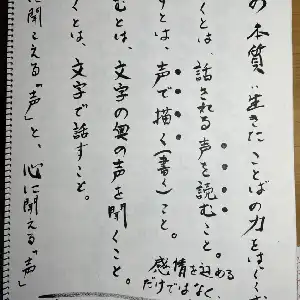 の本質:生きたことばの力をはぐく
くとは、話される声を読むこと。
すとは、声で描く(書く)こと。
むとは、文字の奥の声を聞くこと。
くとは、文字で話すこと。
に聞こえる「声」と、心に聞える「声」
感情を込める
だけではなく、